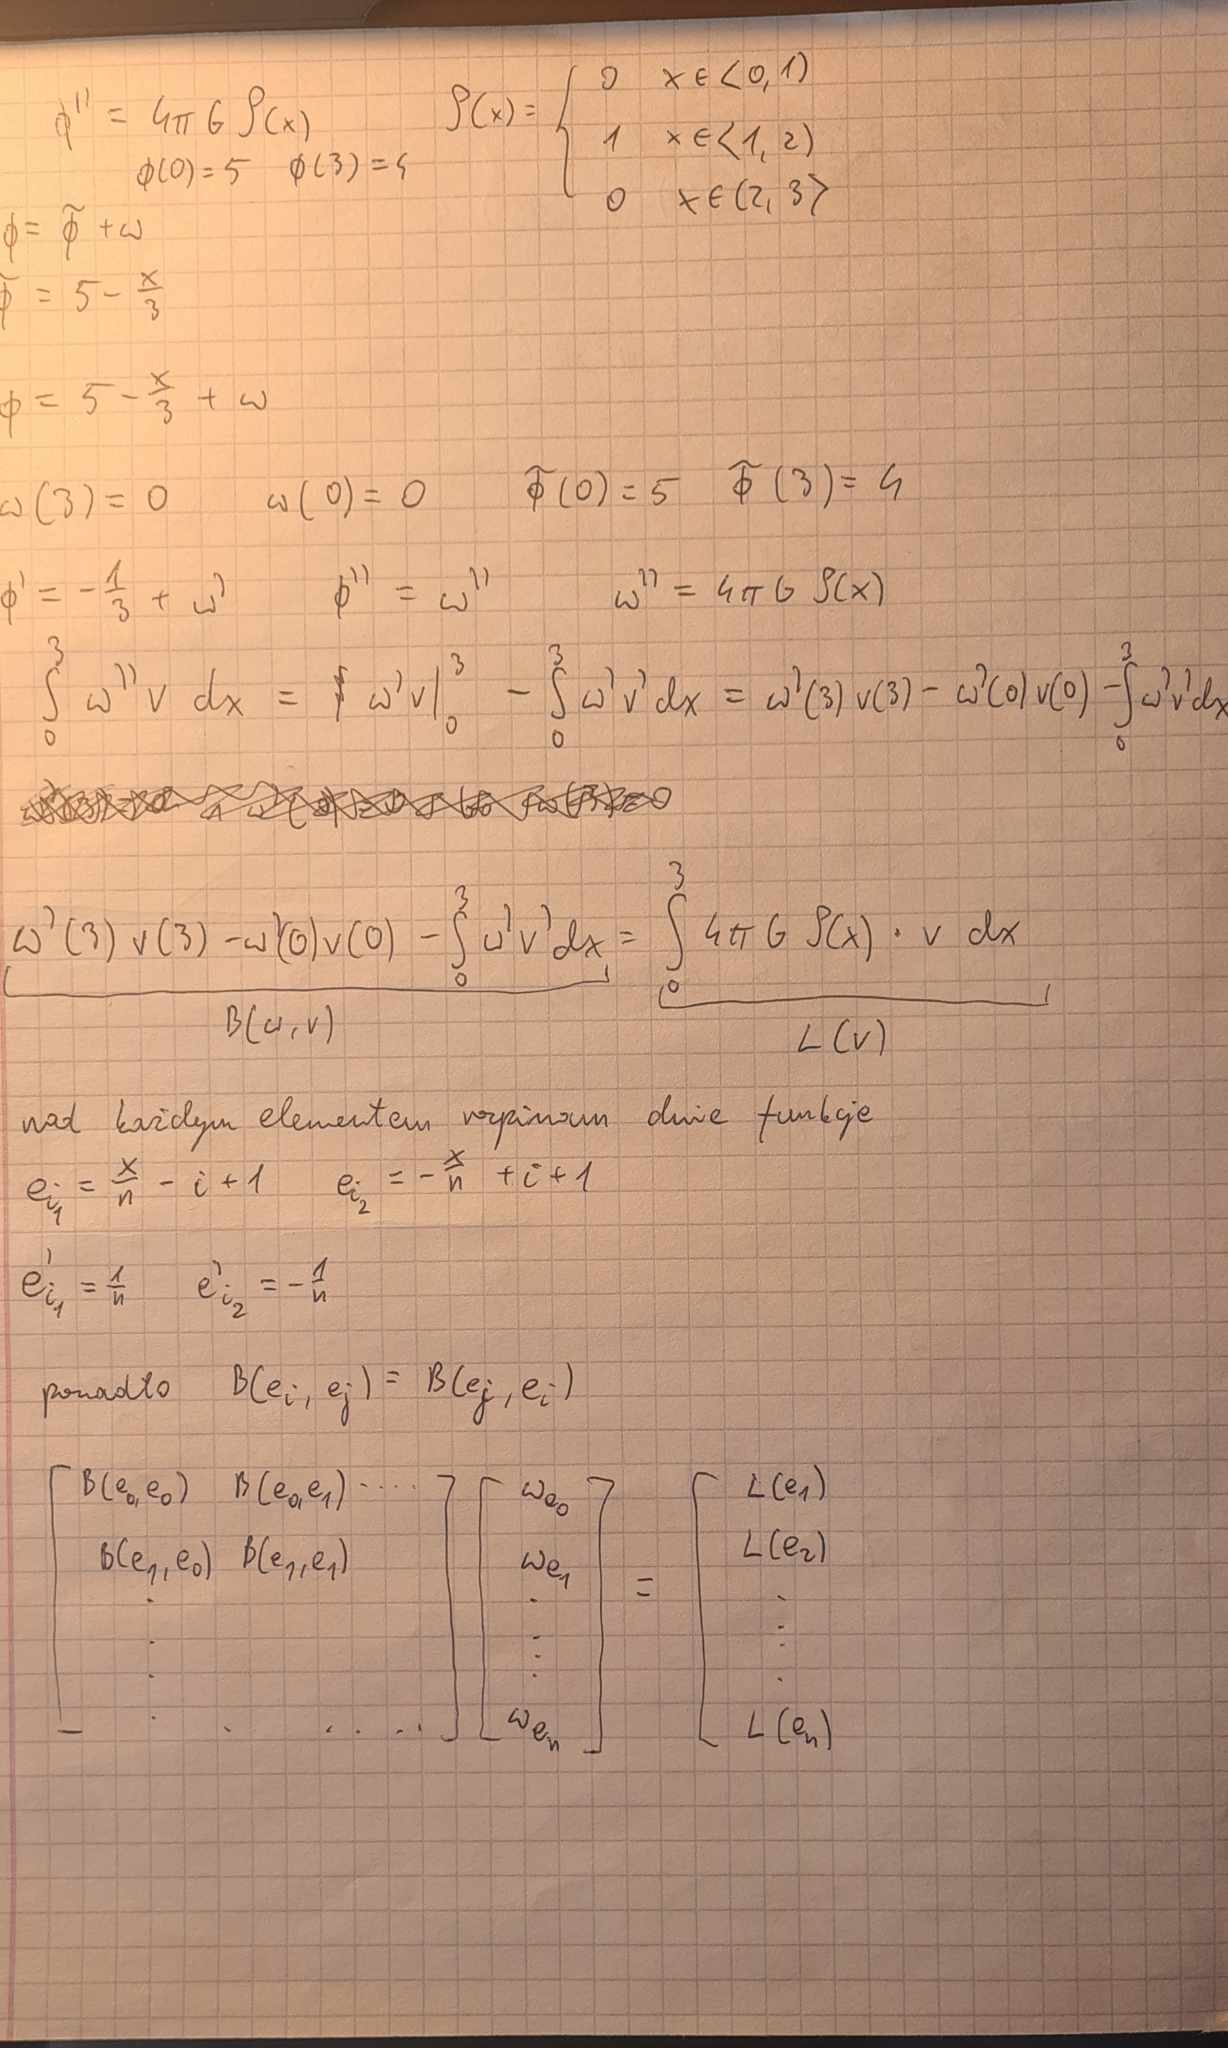 ϕ'' = 4πG ρ(x)   ρ(x) = { 0   x ∈ <0, 1)
1   x ∈ <1, 2)
ϕ(0) = 5   ϕ(3) = 4
0   x ∈ (2, 3>
ϕ = ϕ̃ + ω
ϕ̃ = 5 - x/3
ϕ = 5 - x/3 + ω
ω(3) = 0   ω(0) = 0   ϕ̃(0) = 5   ϕ̃(3) = 4
ϕ' = -1/3 + ω'   ϕ'' = ω''   ω'' = 4πG ρ(x)
∫₀³ ω'' v dx = ω' v |₀³ - ∫₀³ ω' v' dx = ω'(3) v(3) - ω'(0) v(0) - ∫₀³ ω' v' dx
ω'(3) v(3) - ω'(0) v(0) - ∫₀³ ω' v' dx = ∫₀³ 4πG ρ(x) · v dx
B(ω, v)   L(v)
nad każdym elementem rozpinam dwie funkcje
e_{i_1} = x/n - i + 1   e_{i_2} = -x/n + i + 1
e'_{i_1} = 1/n   e'_{i_2} = -1/n
ponadto B(e_i, e_j) = B(e_j, e_i)
[ B(e_0, e_0)   B(e_0, e_1) ····  ] [ ω_{e_0} ] = [ L(e_1) ]
B(e_1, e_0)   B(e_1, e_1)   ω_{e_1}   L(e_2)
ω_{e_n}   L(e_n)